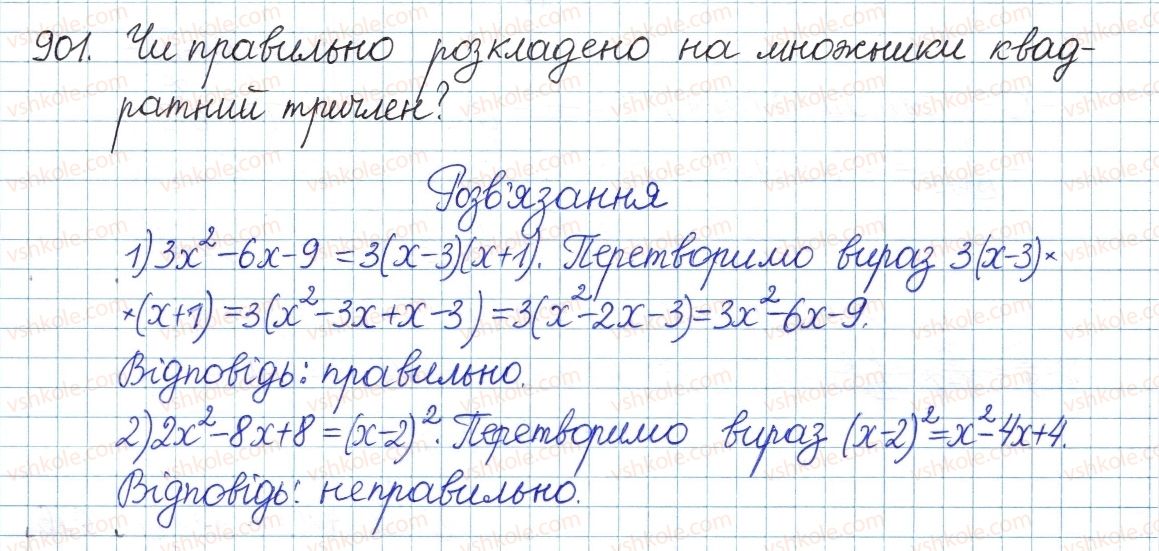 901. Чи правильно розкладено на множники квад-
ратний тричлен?
Розв'язання
1) 3x² - 6x - 9 = 3(x-3)(x+1). Перетворимо вираз 3(x-3)×
×(x+1) = 3(x² - 3x + x - 3) = 3(x² - 2x - 3) = 3x² - 6x - 9.
Відповідь: правильно.
2) 2x² - 8x + 8 = (x-2)². Перетворимо вираз (x-2)² = x² - 4x + 4.
Відповідь: неправильно.